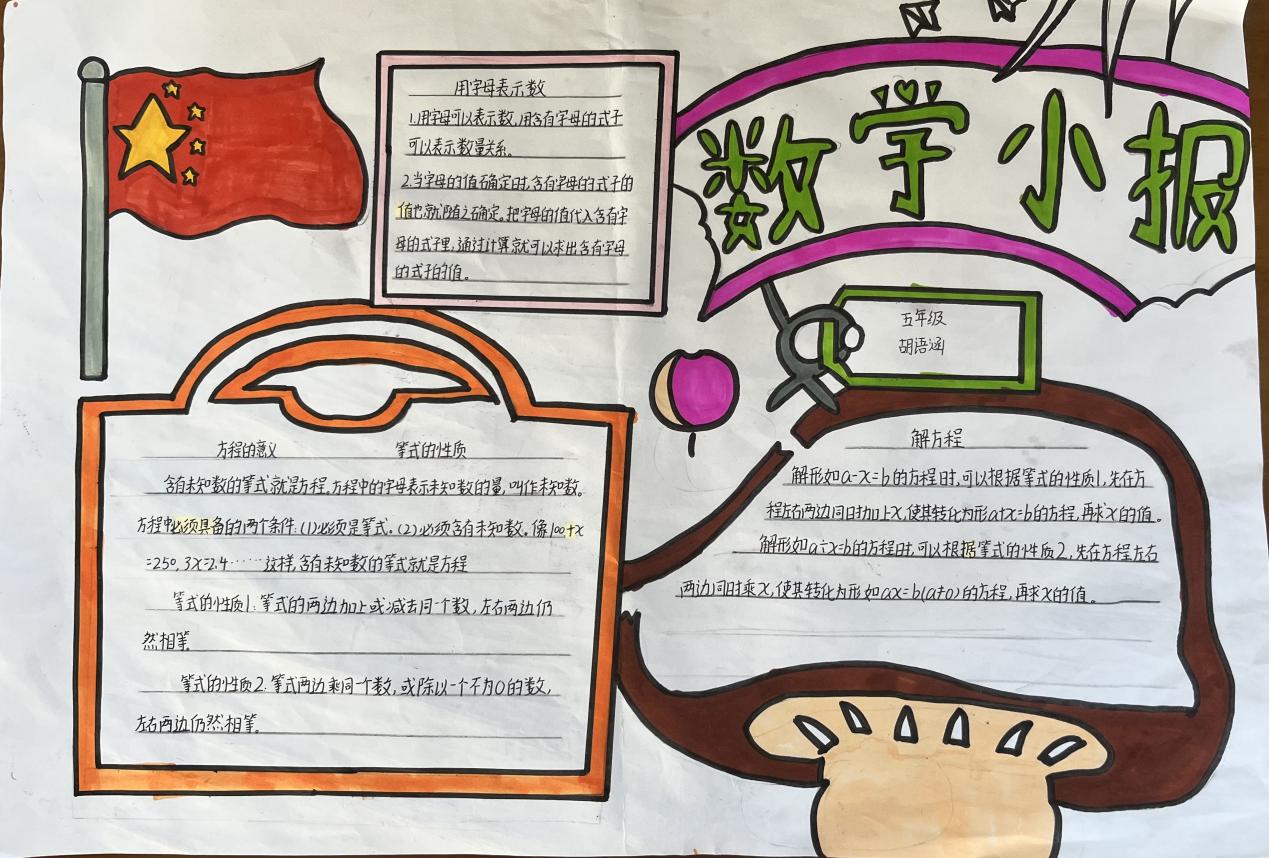 数学小报
五年级
胡语涵
用字母表示数
1.用字母可以表示数,用含有字母的式子
可以表示数量关系。
2.当字母的值确定时,含有字母的式子的
值也就随之确定。把字母的值代入含有字
母的式子里,通过计算就可以求出含有字母
的式子的值。
方程的意义 等式的性质
含有未知数的等式就是方程,方程中的字母表示未知数的量,叫作未知数。
方程中必须具备的两个条件:(1)必须是等式。(2)必须含有未知数。像100+x
=250,3x=2.4……这样,含有未知数的等式就是方程
等式的性质1:等式的两边加上或减去同一个数,左右两边仍
然相等。
等式的性质2:等式两边乘同一个数,或除以一个不为0的数,
左右两边仍然相等。
解方程
解形如a-x=b的方程时,可以根据等式的性质1,先在方
程左右两边同时加上x,使其转化为形a+x=b的方程,再求x的值。
解形如a÷x=b的方程时,可以根据等式的性质2,先在方程左右
两边同时乘x,使其转化为形如ax=b(a≠0)的方程,再求x的值。